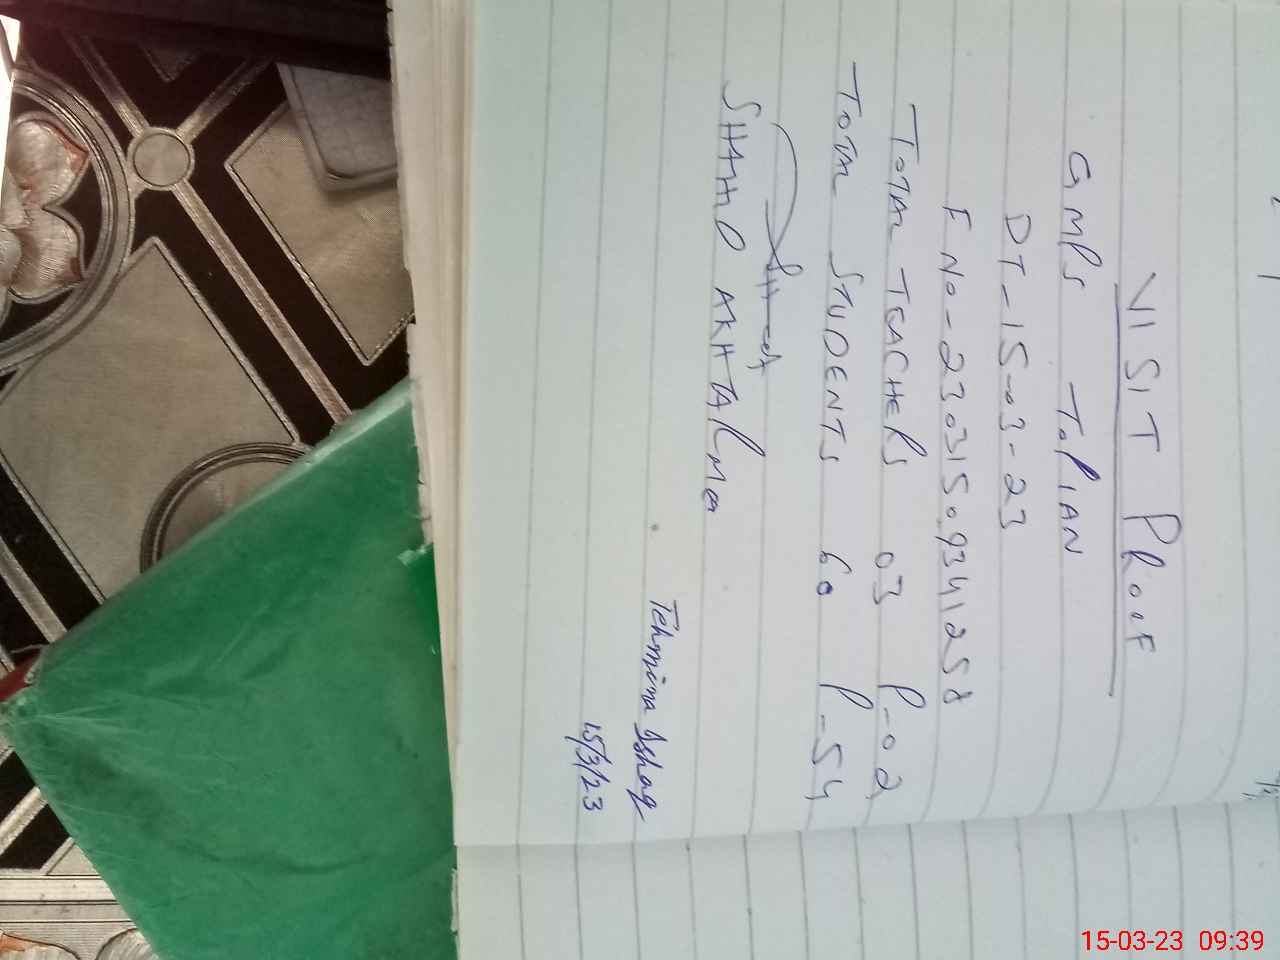 VISIT PROOF
GMPS TOPIAN
DT-15-03-23
F No-23031509341258
TOTAL TEACHERS 03 P-02
TOTAL STUDENTS 60 P-54
SHAHID AKHTAR
Tehmina Ishaq
15/3/23
15-03-23 09:39